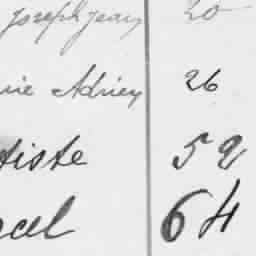 Joseph Jean 20
rie Adrien 26
tiste 52
cel 64